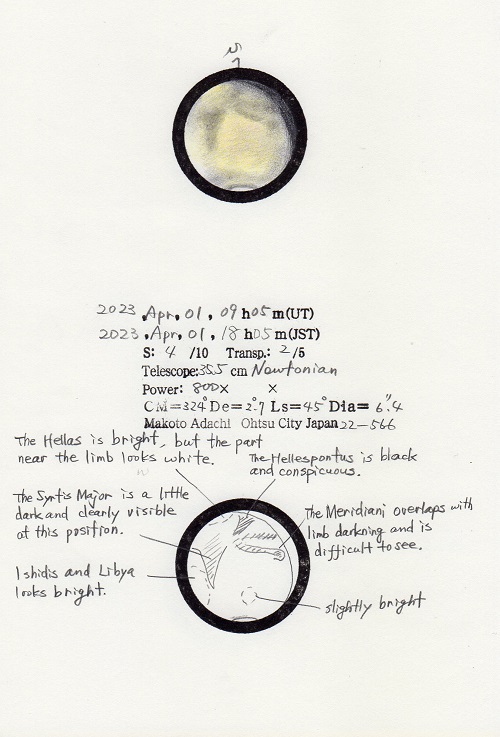 S
2023, Apr, 01, 09 h 05 m (UT)
2023, Apr, 01, 18 h 05 m (JST)
S: 4 /10 Transp.: 2 /5
Telescope: 35.5 cm Newtonian
Power: 800× ×
CM=324° De=2.°7 Ls=45° Dia= 6".4
Makoto Adachi Ohtsu City Japan 22-566
The Hellas is bright, but the part
near the limb looks white.
The Hellespontus is black
and conspicuous.
The Syrtis Major is a little
dark and clearly visible
at this position.
The Meridiani overlaps with
limb darkning and is
difficult to see.
Ishidis and Libya
looks bright.
slightly bright